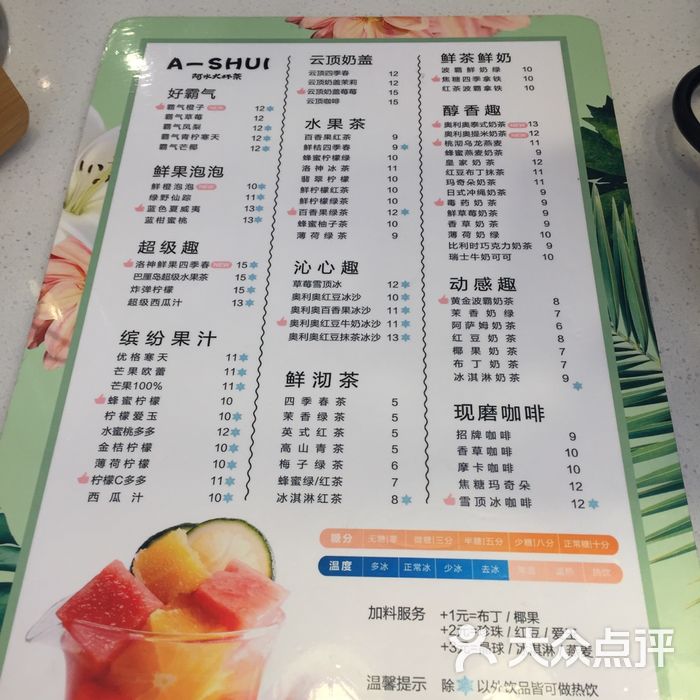 A-SHUI
阿水大杯茶
好霸气
霸气橙子 NEW 12
霸气草莓 12
霸气凤梨 12
霸气青柠寒天 12
霸气芒椰 12
鲜果泡泡
鲜橙泡泡 NEW 10
绿野仙踪 11
蓝色夏威夷 13
蓝柑蜜桃 13
超级趣
洛神鲜果四季春 NEW 15
巴厘岛超级水果茶 15
炸弹柠檬 15
超级西瓜汁 13
缤纷果汁
优格寒天 11
芒果欧蕾 11
芒果100% 11
蜂蜜柠檬 10
柠檬爱玉 10
水蜜桃多多 12
金桔柠檬 10
薄荷柠檬 10
柠檬C多多 11
西瓜汁 10
云顶奶盖
云顶四季春 12
云顶奶盖茉莉 12
云顶奶盖莓莓 15
云顶咖啡 15
水果茶
百香果红茶 9
鲜桔四季春 9
蜂蜜柠檬绿 10
洛神冰茶 10
翡翠柠檬 10
鲜柠檬红茶 10
鲜柠檬绿茶 10
百香果绿茶 12
蜂蜜柚子茶 10
薄荷绿茶 9
沁心趣
草莓雪顶冰 12
奥利奥红豆冰沙 11
奥利奥百香果冰沙 11
奥利奥红豆牛奶冰沙 11
奥利奥红豆抹茶冰沙 13
鲜沏茶
四季春茶 5
茉香绿茶 5
英式红茶 5
高山青茶 5
梅子绿茶 5
蜂蜜绿/红茶 7
冰淇淋红茶 8
鲜茶鲜奶
波霸鲜奶绿 10
焦糖四季拿铁 10
红茶波霸拿铁 10
醇香趣
奥利奥泰式奶茶 NEW 13
奥利奥提米奶茶 NEW 12
桃沏乌龙燕麦 11
蜂蜜燕麦奶茶 9
皇家奶茶 12
红豆布丁抹茶 11
玛奇朵奶茶 11
日式冲绳奶茶 10
毒药奶茶 11
鲜草莓奶茶 9
香草奶茶 9
薄荷奶绿 10
比利时巧克力奶茶 9
瑞士牛奶可可 10
动感趣
黄金波霸奶茶 8
茉香奶绿 7
阿萨姆奶茶 7
红豆奶茶 8
椰果奶茶 7
布丁奶茶 7
冰淇淋奶茶 9
现磨咖啡
招牌咖啡 9
香草咖啡 9
摩卡咖啡 10
焦糖玛奇朵 12
雪顶冰咖啡 12
糖分 无糖|零 微糖|三分 半糖|五分 少糖|八分 正常糖|十分
温度 多冰 正常冰 少冰 去冰 常温 温热 热饮
加料服务 +1元=布丁/椰果
+2元=珍珠/红豆/爱
+3元= 球/冰淇淋/燕麦
温馨提示 除 以外饮品皆可做热饮
大众点评